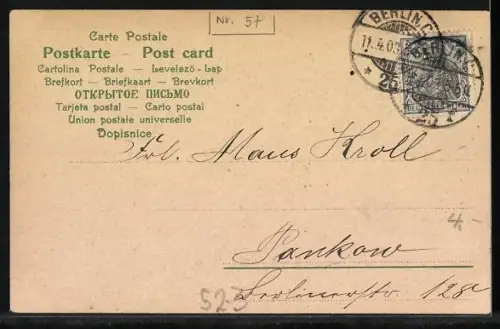 Nr. 57
Carte Postale
Postkarte – Post card
Cartolina Postale – Levelező-Lap
Brefkort – Briefkaart – Brevkort
ОТКРЫТОЕ ПИСЬМО
Tarjeta postal – Carto postal
Union postale universelle
Dopisnice
BERLIN C.
11.4.03
25
BERLIN C.
25
Frl. Maus Kroll
4,-
Pankow
Berlinerstr. 128
523